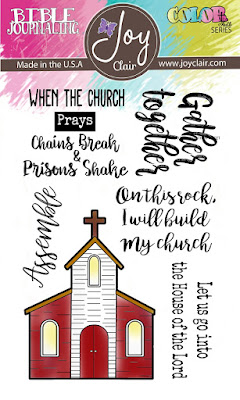 BIBLE
JOURNALING
Joy
Clair
COLOR
SERIES
Made in the U.S.A
www.joyclair.com
WHEN THE CHURCH
Prays
Chains Break
&
Prisons Shake
Gather
together
Assemble
On this rock,
I will build
My church
Let us go into
the House of the Lord